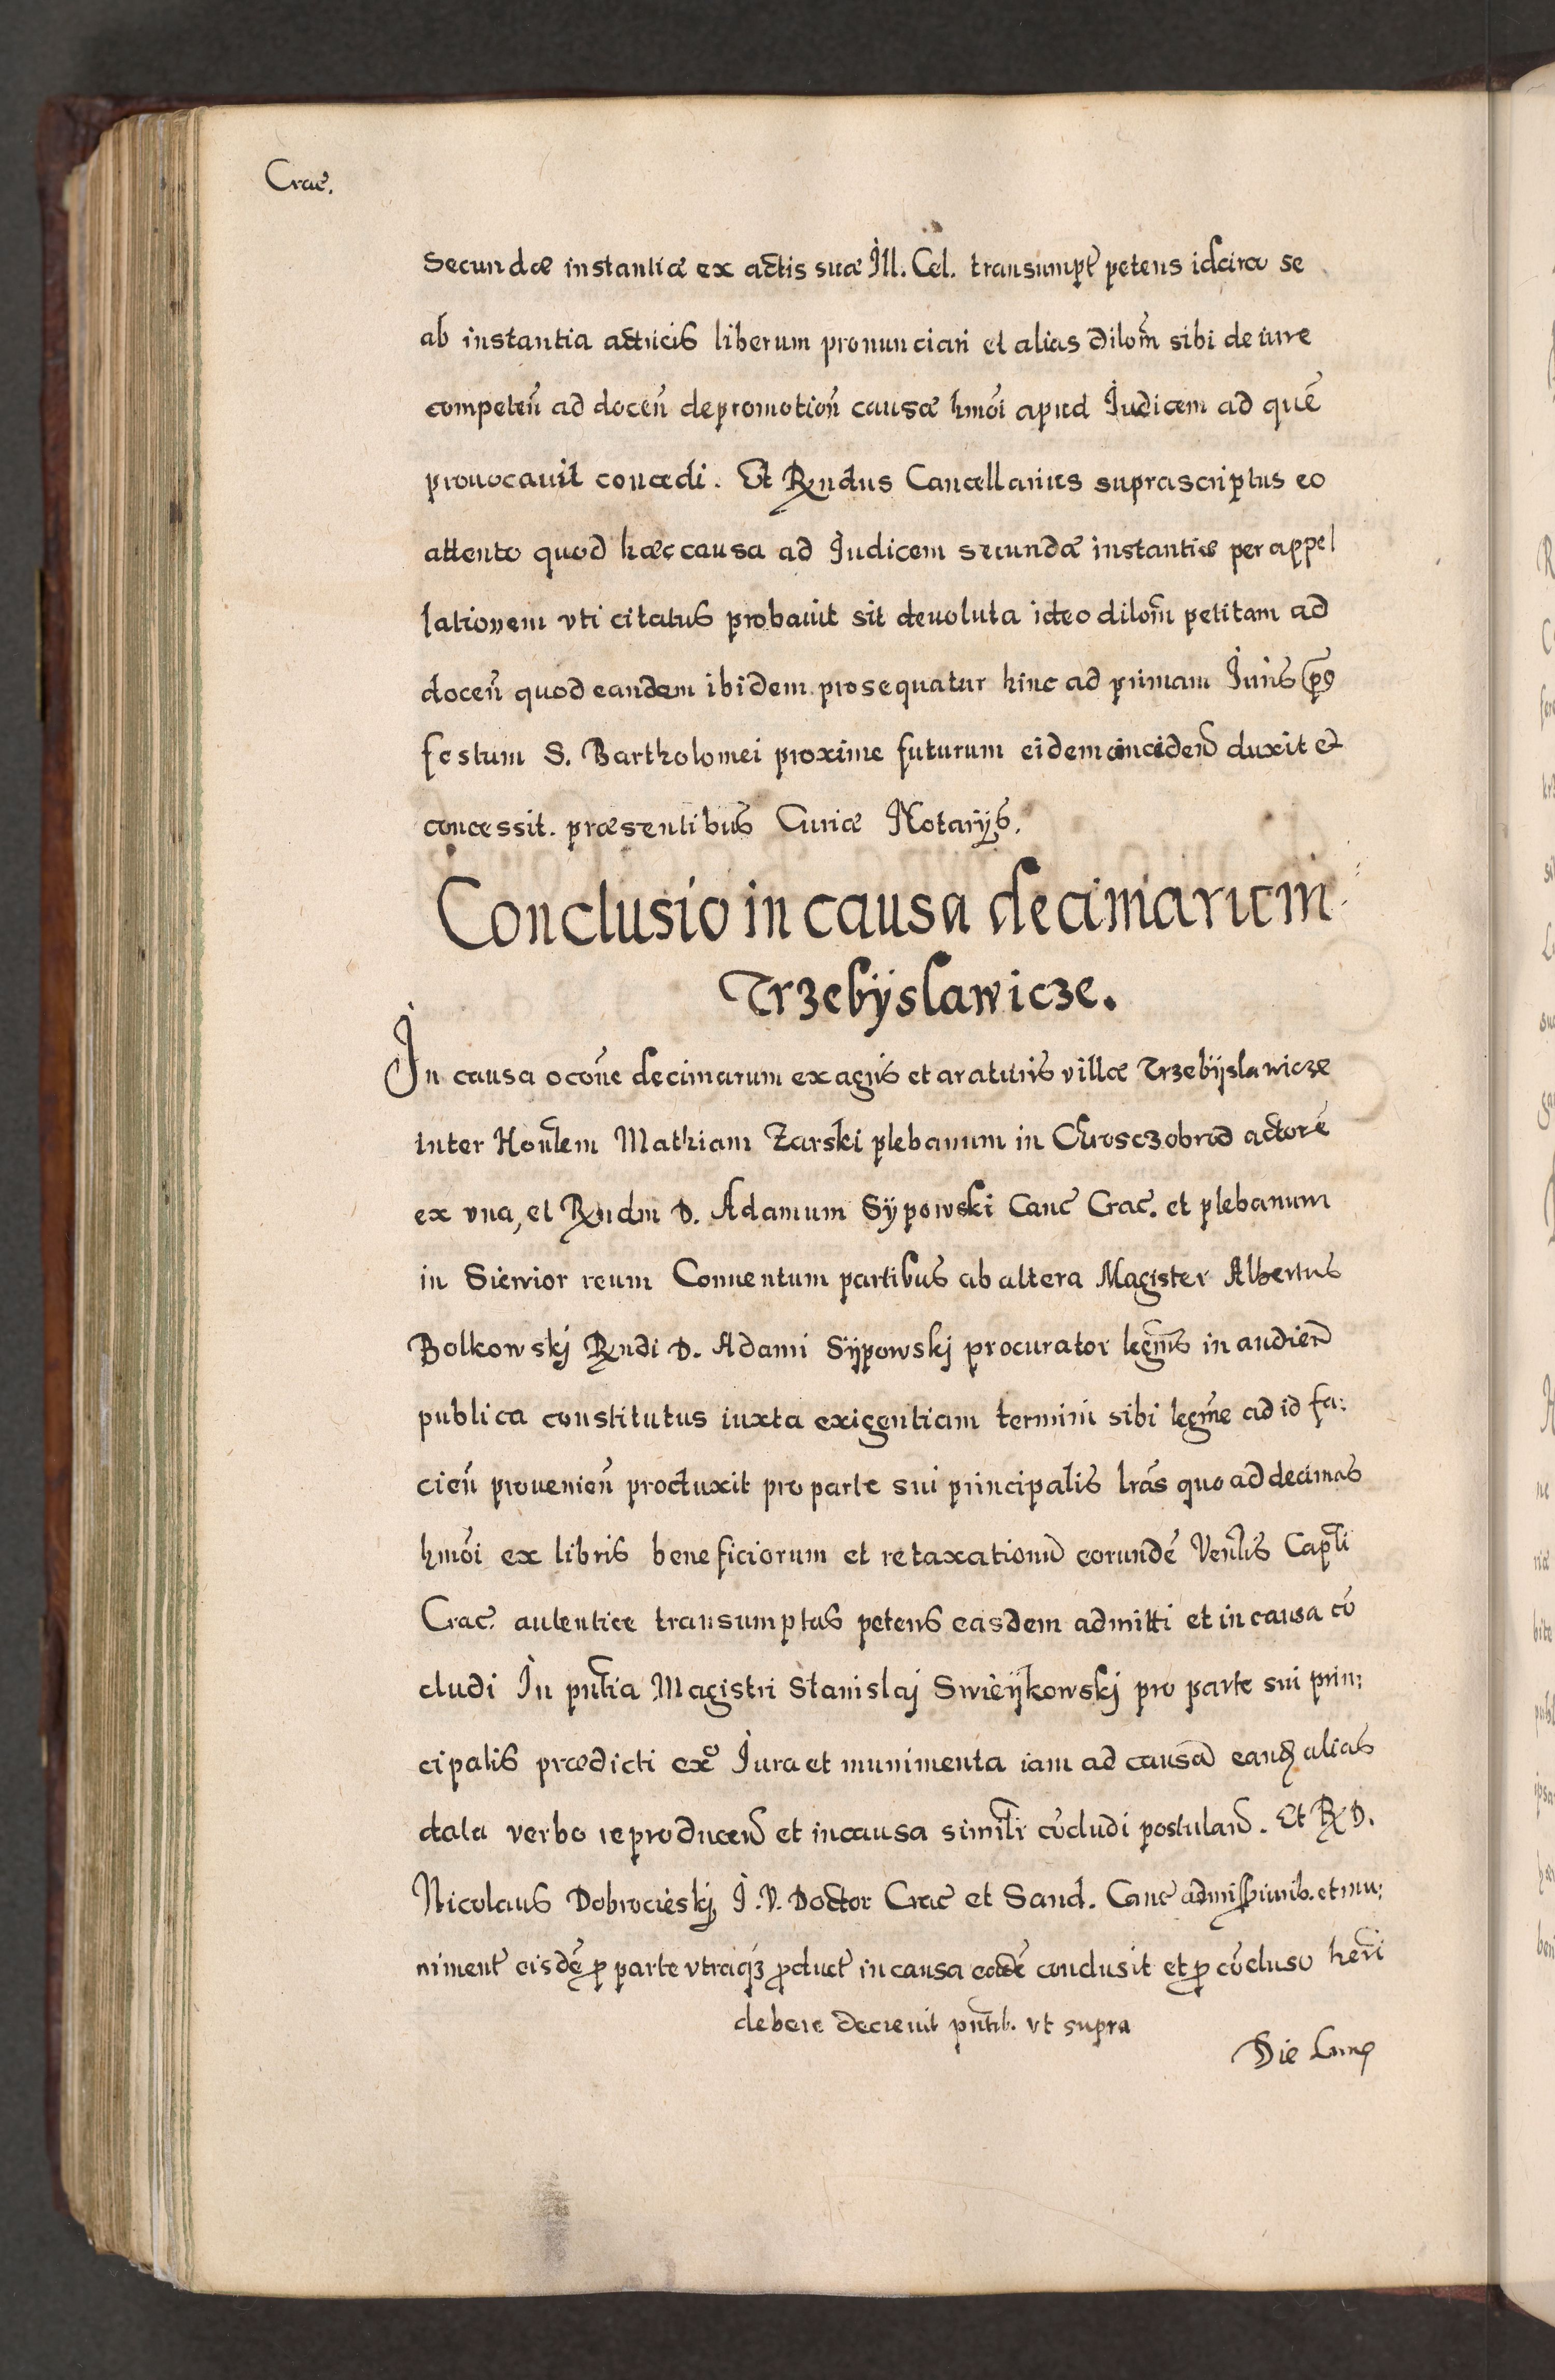 Crac̃.
secundæ instantiæ ex actis suæ Ill. Cel. transumpt̃ petens idcirco se
ab instantia actricis liberum pronunciari et alias dilom̃ sibi de iure
competeñ ad doceñ de promotioñ causæ hmõi apud Iudicem ad quẽ
prouocauit concedi. Et Rndus Cancellarius suprascriptus eo
attento quod hæc causa ad Iudicem secundæ instantiæ per appel
lationem vti citatus probauit sit deuoluta ideo dilom̃ petitam ad
doceñ quod eandem ibidem prosequatur hinc ad primam Iuris p9
festum S. Bartholomei proxime futurum eidem
duxit et
concessit. præsentibus Curiæ Notarijs.
Conclusio in causa decimarum
Trzebÿslawicze.
In causa occõne decimarum ex agris et araturis villæ Trzebijslawicze
inter Honlem̃ Mathiam Zarski plebanum in Chrosczobrod actorẽ
ex vna, et Rndm D. Adamum Sÿpowski Canc̃ Crac̃. et plebanum
in Siewior reum Conuentum partibus ab altera Magister Albertus
Bolkowskj Rndi D. Adami Sÿpowskj procurator legm̃s in audieñ
publica constitutus iuxta exigentiam termini sibi legm̃e ad id fa:
cieñ prouenieñ produxit pro parte sui principalis lrãs quo ad decimas
hmõi ex libris beneficiorum et retaxationũ eorundẽ Venlis̃ Caplĩ
Crac̃. autentice transumptas petens easdem admitti et in causa cõ
cludi In pntĩa Magistri Stanislaj Swieÿkowskj pro parte sui prin:
cipalis prædicti ex° Iura et munimenta iam ad causã eand alias
data verbo reproduceñ et in causa similr̃ cõcludi postulañ. Et R D.
Nicolaus Dobrocieskj I. V. Doctor Crac̃ et Sand. Canc̃ admissis iurib. et mu:
niment̃ eisdẽ p parte vtraqꝫ product̃ in causa eadẽ conclusit et p cõcluso heri
debere decreuit pntib̃. vt supra
Die Lunę